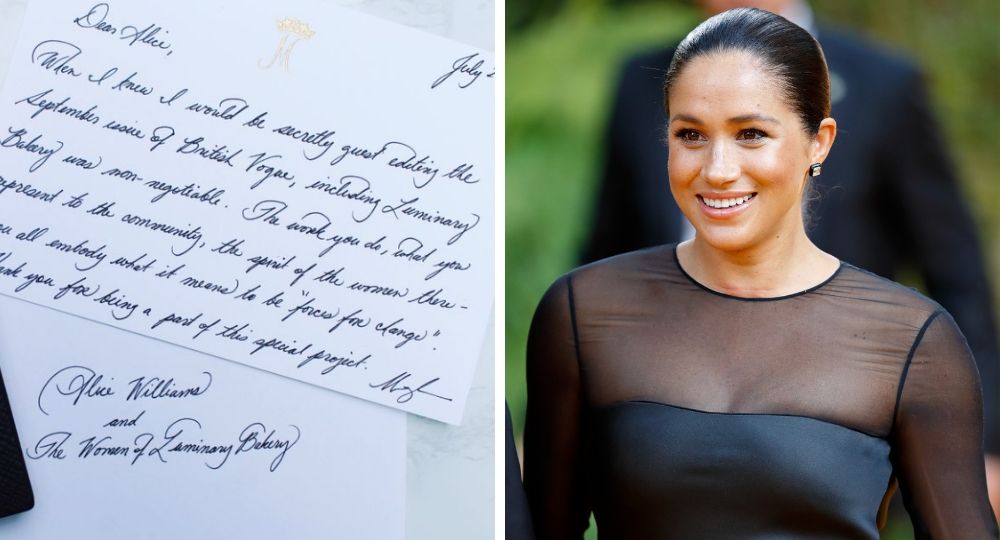 M
July 2
Dear Alice,
When I knew I would be secretly guest editing the
September issue of British Vogue, including Luminary
Bakery was non-negotiable. The work you do, what you
represent to the community, the spirit of the women there -
you all embody what it means to be "forces for change".
Thank you for being a part of this special project.
Alice Williams
and
The Women of Luminary Bakery